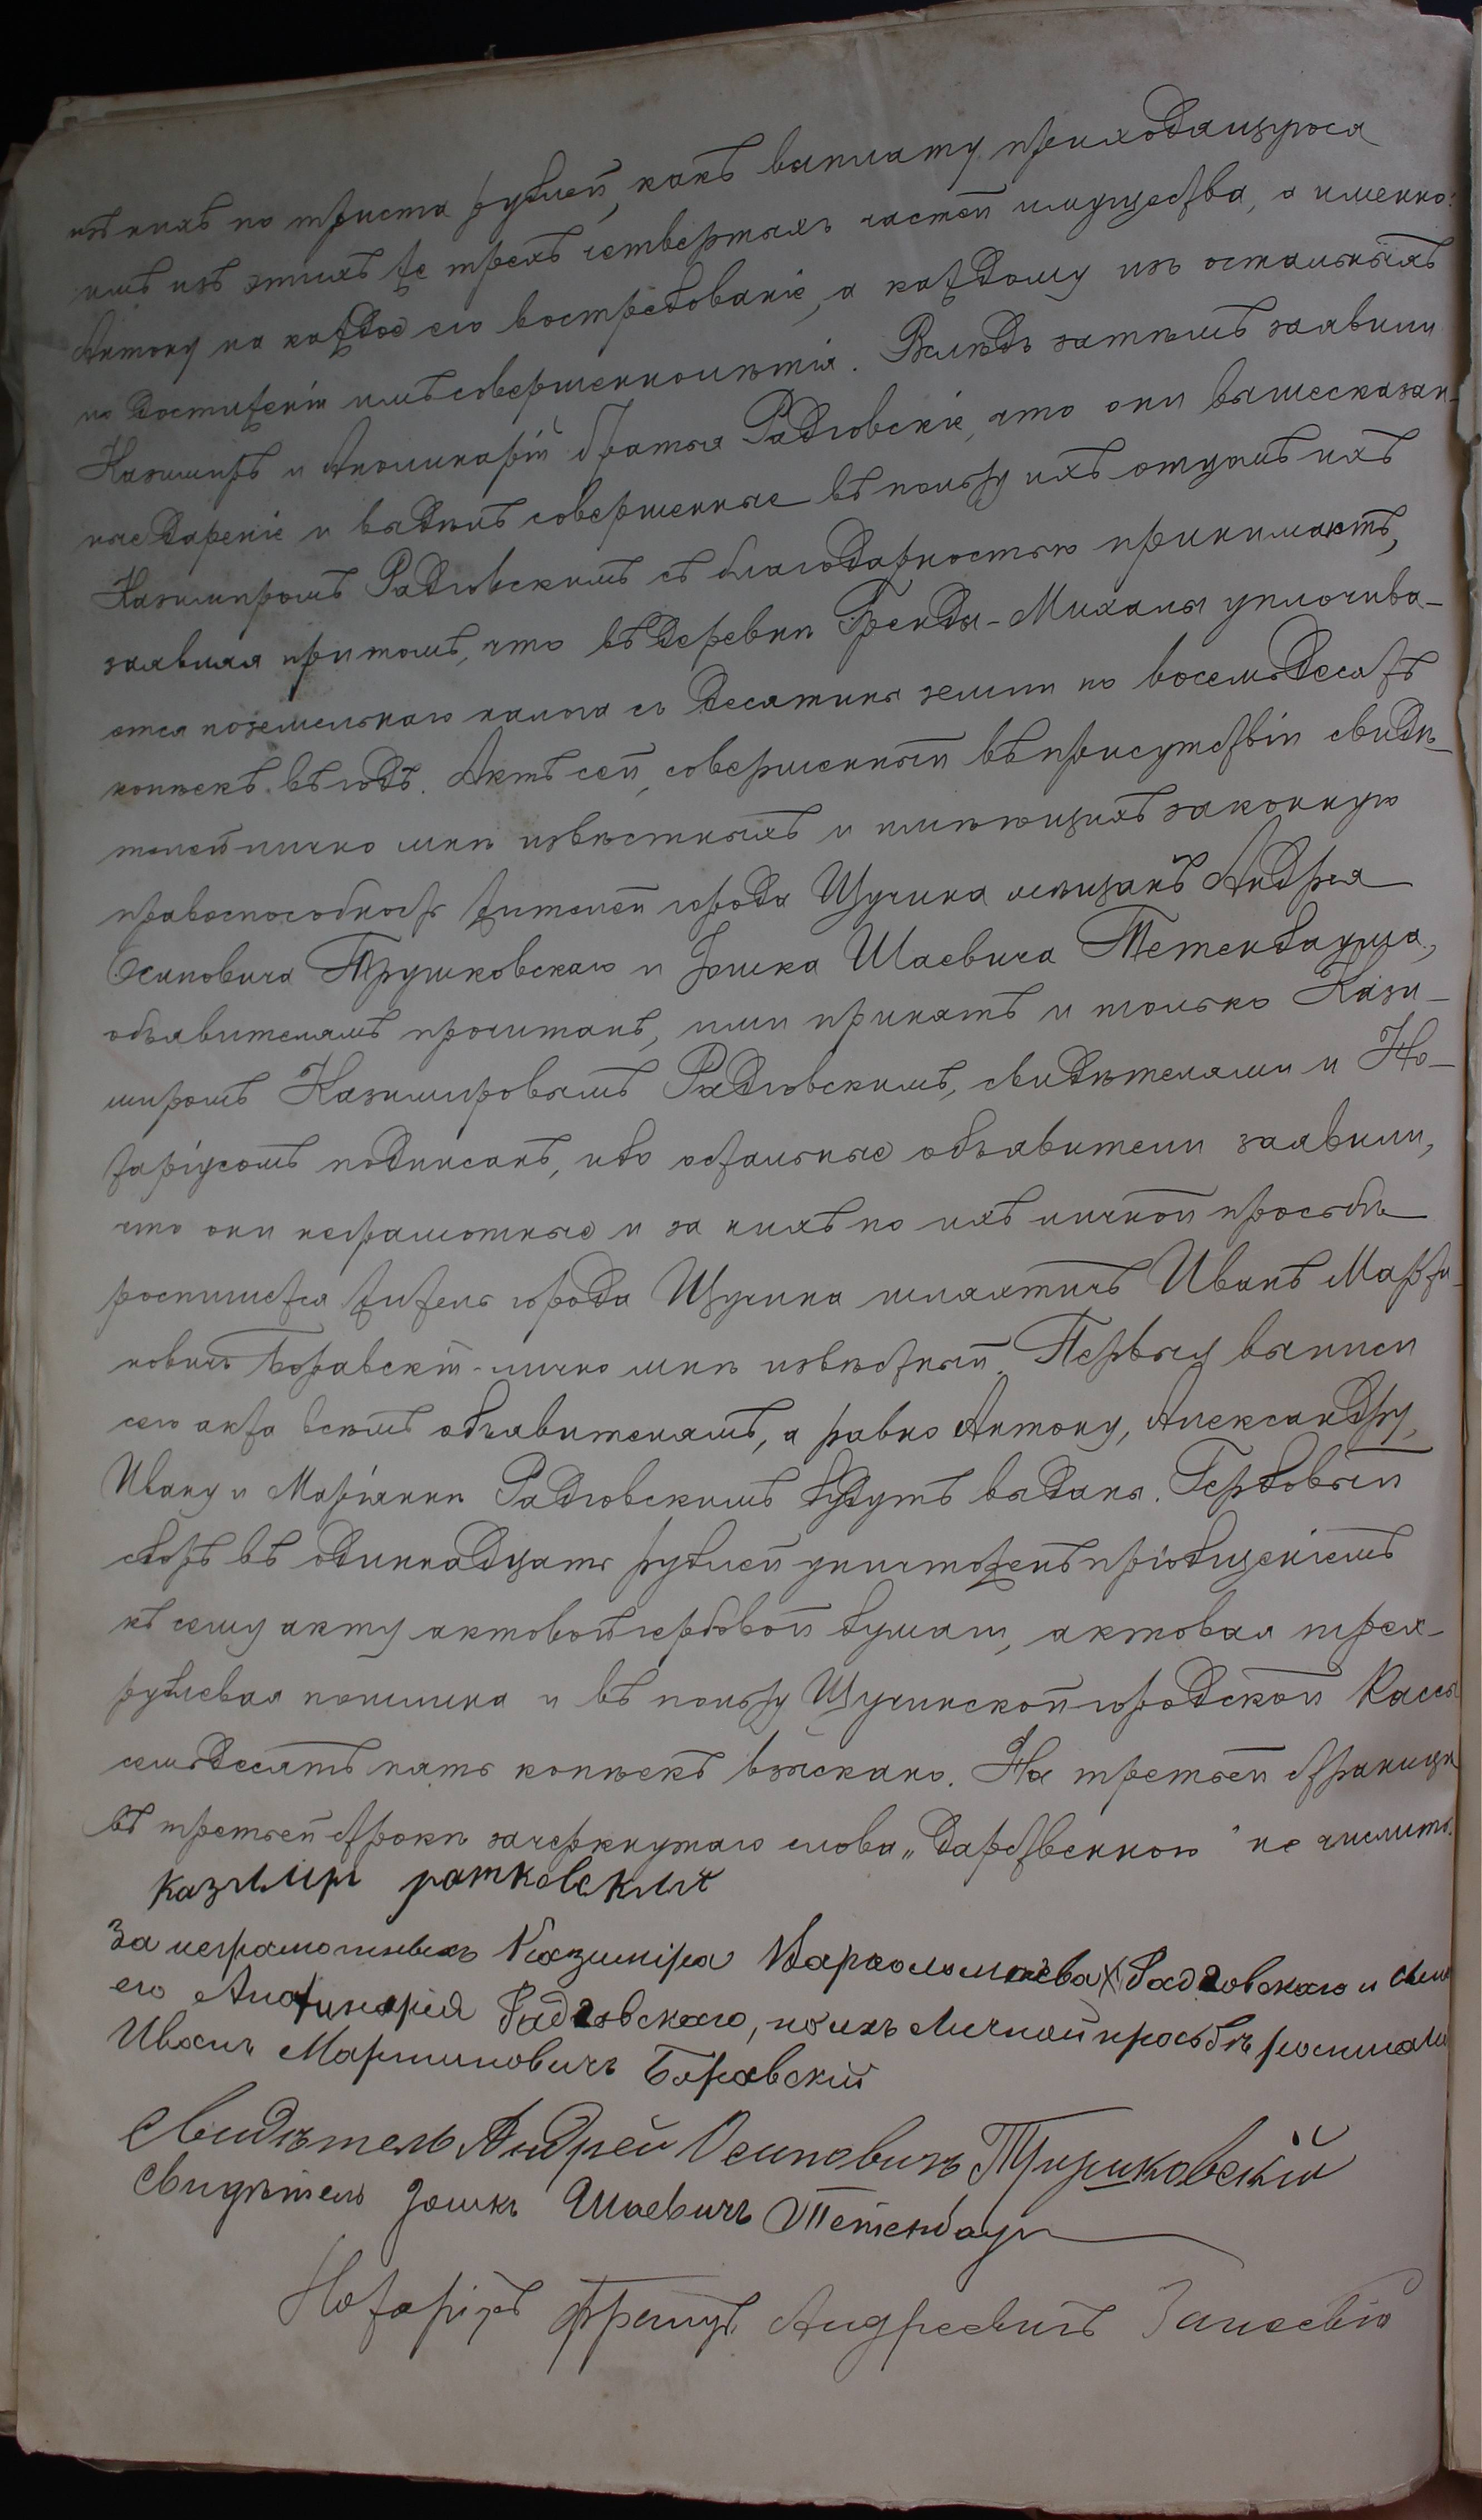 изъ нихъ по триста рублей, какъ выплату приходащуюся
имъ изъ этихъ же трехъ четвертыхъ частей имущества, а именно:
Антону на каждое его востребованіе, а каждому изъ остальныхъ
по достиженіи имъ совершеннолѣтія. Вслѣдъ затѣмъ заявили
Казимиръ и Аполинарій братья Радговскіе, что они вышесказан-
ные дареніе и выдѣлъ совершенные въ пользу ихъ отцомъ ихъ
Казимиромъ Радговскимъ съ благодарностью принимаютъ,
заявляя притомъ, что въ деревни Гренды-Михалы уплочива-
ется поземельнаго налога съ десятины земли по восемьдесятъ
копѣекъ въ годъ. Актъ сей, совершенный въ присутствіи свидѣ-
телей лично мнѣ извѣстныхъ и имѣющихъ законную
правоспособность жителей города Щучина мѣщанъ Андрея
Осиповича Трушковскаго и Іошка Шаевича Тетенбаума,
объявителямъ прочитанъ, ими принятъ и только Кази-
миромъ Казимировымъ Радговскимъ, свидѣтелями и Но-
таріусомъ подписанъ, ибо остальные объявители заявили,
что они неграмотные и за нихъ по ихъ личной просьбѣ
роспишется житель города Щучина шляхтичъ Иванъ Марти-
новичъ Боравскій лично мнѣ извѣстный. Первыя выписи
сего акта всѣмъ объявителямъ, а равно Антону, Александру,
Ивану и Маріаннѣ Радговскимъ будутъ выданы. Гербовый
сборъ въ одиннадцать рублей уничтоженъ пріобщеніемъ
къ сему акту актовой гербовой бумаги, актовая трех-
рублевая пошлина и въ пользу Щучинской городской Кассы
семьдесятъ пять копѣекъ взыскано. На третьей страницѣ
въ третьей строкѣ зачеркнутаго слова „дарственною" не числить.
Казимир ратковский
За неграмотныхъ Казиміра Вархоломаева Радговскаго и сына
его Аполинарія Радговскаго, по ихъ личной просьбѣ росписался
Иванъ Мартиновичъ Боравскій
Свидѣтель Андрей Осиповичъ Трушковскій
Свидѣтель Іошкъ Шаевичъ Тетенбаум
Нотаріусъ Францъ Андреевичъ